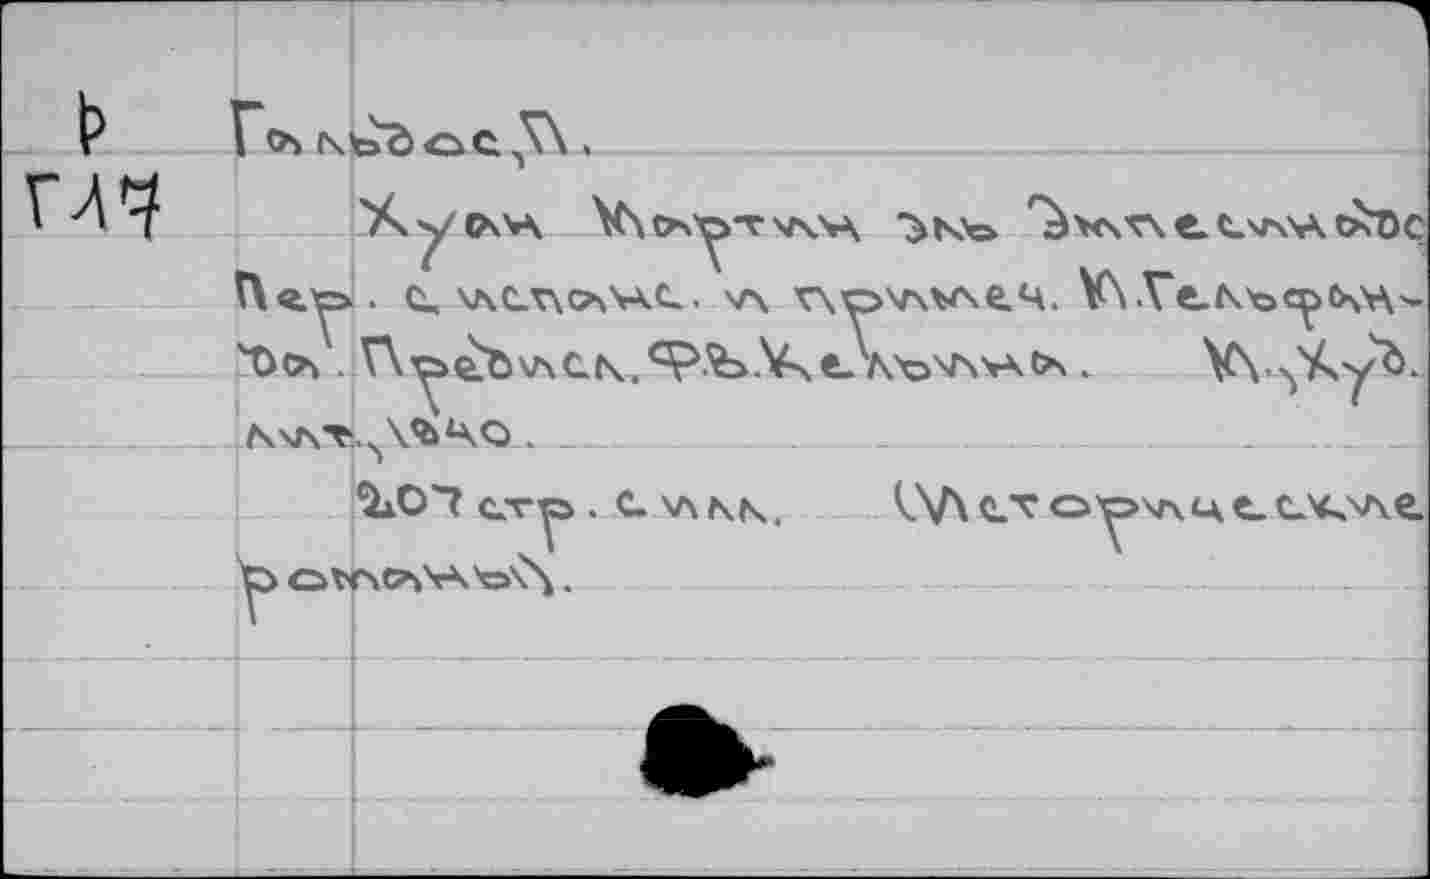 Р
Г 14
Гальдос, П.
Хуан Мартин Эль Эмпесинадо
Пер. с испанс. и примеч. И. Гельфан-
да. Предисл. Ф.В. Кельина. М., Худ.
лит.,
207 стр. с илл. (Исторические
романы).